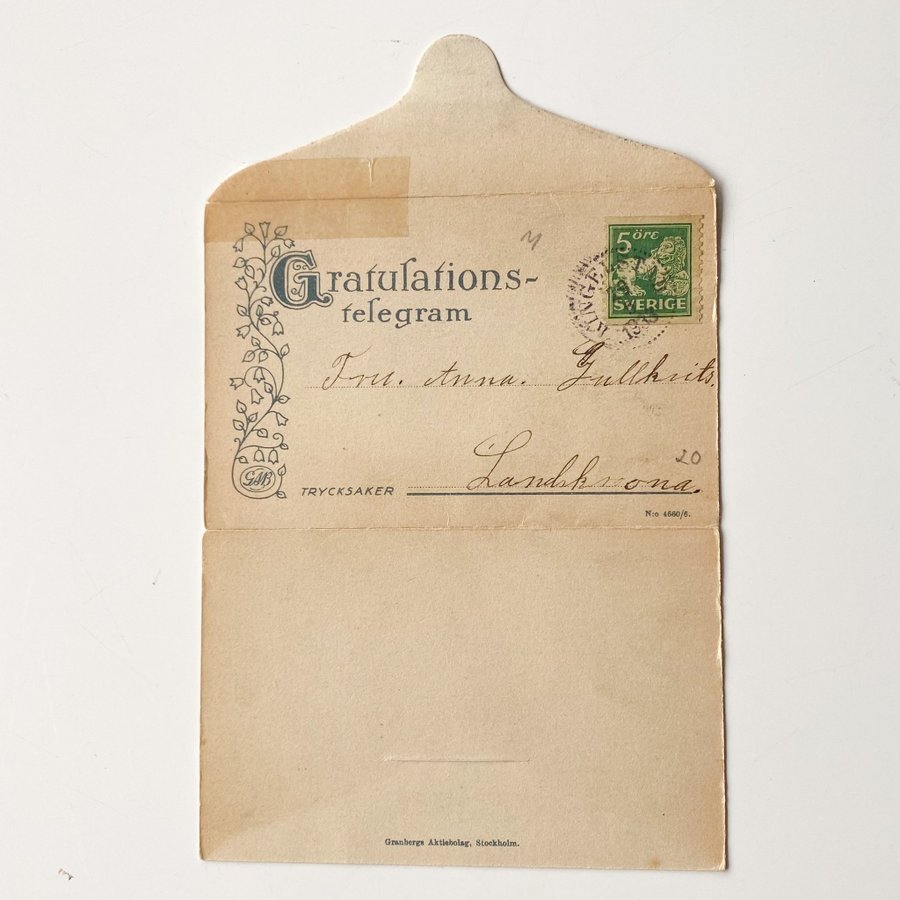 M
Gratulations-
telegram
5 öre
SVERIGE
Fru. Anna. Gullkrits.
20
Landskrona.
TRYCKSAKER
GAB
N:o 4660/6.
Granbergs Aktiebolag, Stockholm.